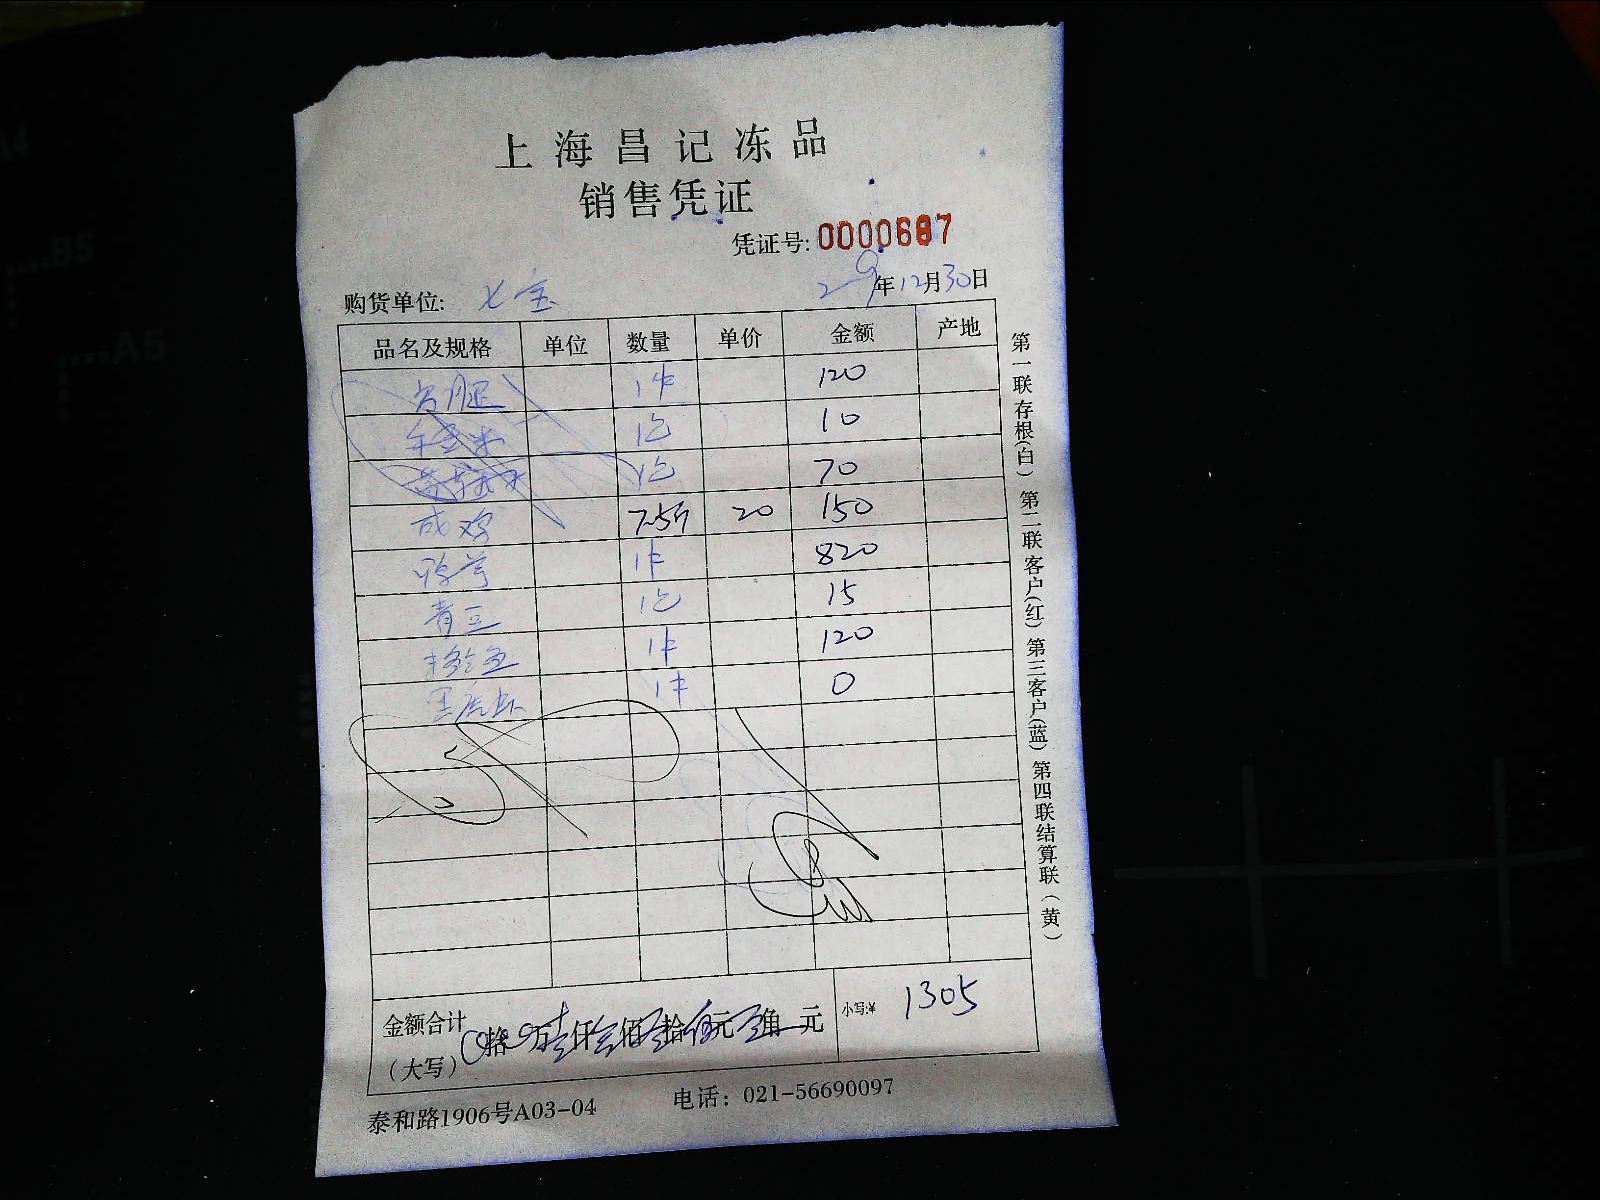 上海昌记冻品
销售凭证
凭证号: 0000687
购货单位: 七宝 29年12月30日
品名及规格 单位 数量 单价 金额 产地
1件 120
玉米 1包 10
1包 70
成鸡 7.5斤 20 150
1件 820
青豆 1包 15
1件 120
1件 0
金额合计 拾 万 仟 佰 拾 元 角 元 小写:¥ 1305
(大写)
泰和路1906号A03-04 电话: 021-56690097
第一联存根(白) 第二联客户(红) 第三客户(蓝) 第四联结算联(黄)
A4
B5
A5